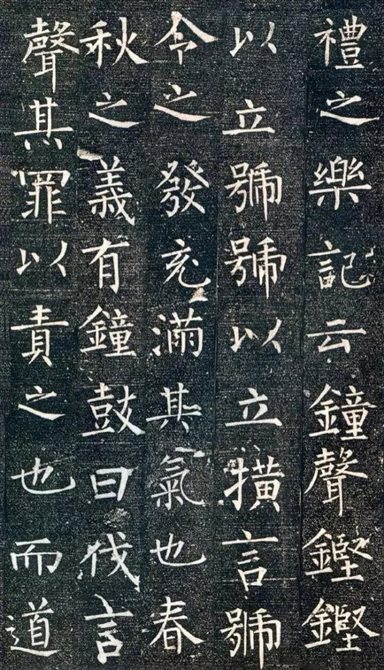 禮之樂記云鐘聲鏗鏗
以立號號以立撗言號
令之發充滿其氣也春
秋之義有鐘鼓曰伐言
聲其罪以責之也而道